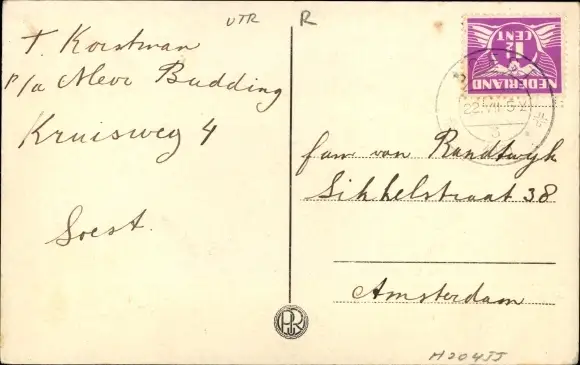 UTR R
T. Korstman
p/a Mevr Budding
Kruisweg 4
Soest.
NEDERLAND
1½
CENT
fam van Randtwyk
Sikkelstraat 38
Amsterdam
M204JJ